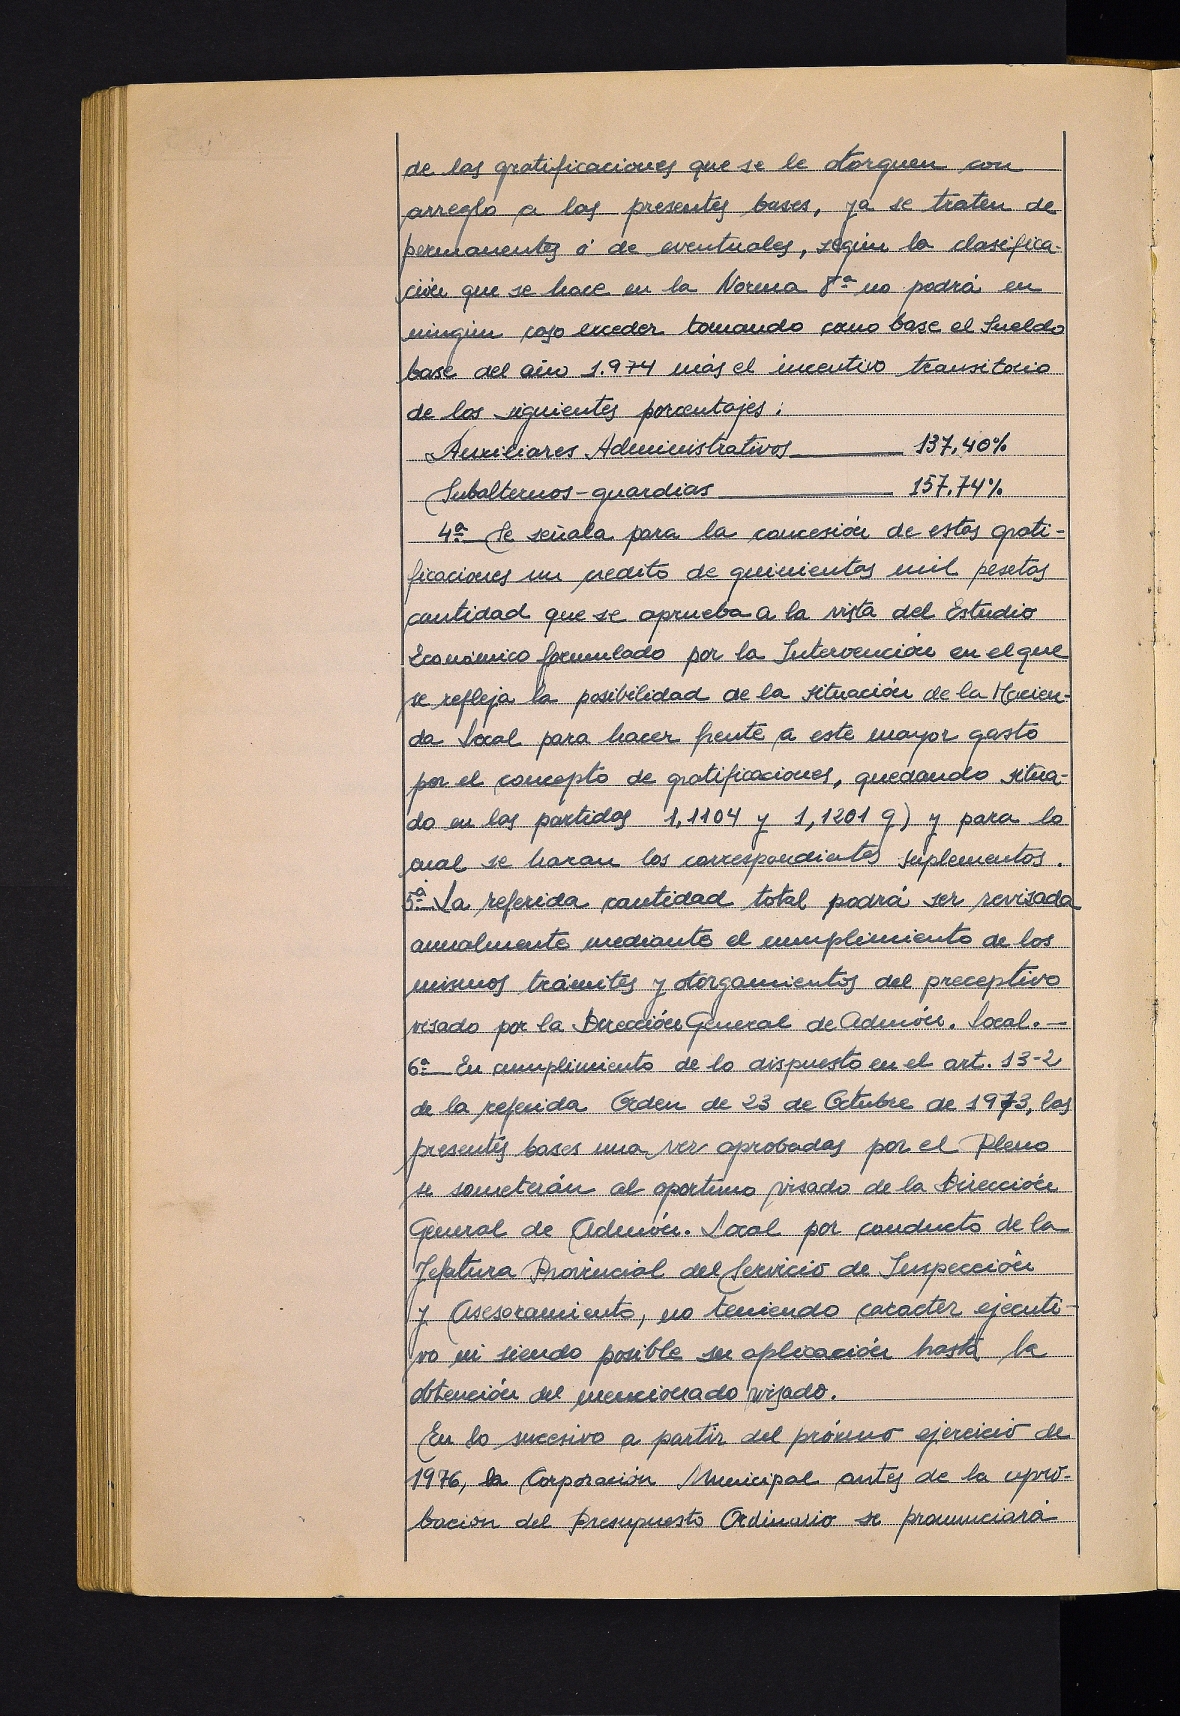 de las gratificaciones que se le otorguen con
arreglo a las presentes bases, ya se traten de
permanentes ó de eventuales, según la clasifica-
ción que se hace en la Norma 8ª no podrá en
ningún caso exceder tomando como base el Sueldo
base del año 1.974 más el incentivo transitorio
de los siguientes porcentajes:
Auxiliares Administrativos 137,40%
Subalternos-guardias 157,74%
4ª Se señala para la concesión de estas grati-
ficaciones un credito de quinientas mil pesetas
cantidad que se aprueba a la vista del Estudio
Económico formulado por la Intervención en el que
se refleja la posibilidad de la situación de la Hacien-
da Local para hacer frente a este mayor gasto
por el concepto de gratificaciones, quedando situa-
do en las partidas 1,1104 y 1,1201 g) y para lo
cual se haran los correspondientes suplementos.
5ª La referida cantidad total podrá ser revisada
anualmente mediante el cumplimiento de los
mismos trámites y otorgamientos del preceptivo
visado por la Dirección General de Admón. Local.—
6ª En cumplimiento de lo dispuesto en el art. 13-2
de la referida Orden de 23 de Octubre de 1973, las
presentes bases una vez aprobadas por el Pleno
se someterán al oportuno visado de la Dirección
General de Admón. Local por conducto de la
Jefatura Provincial del Servicio de Inspección
y Asesoramiento, no teniendo caracter ejecuti-
vo ni siendo posible su aplicación hasta la
obtención del mencionado visado.
En lo sucesivo a partir del próximo ejercicio de
1976, la Corporación Municipal antes de la apro-
bacion del Presupuesto Ordinario se pronunciará